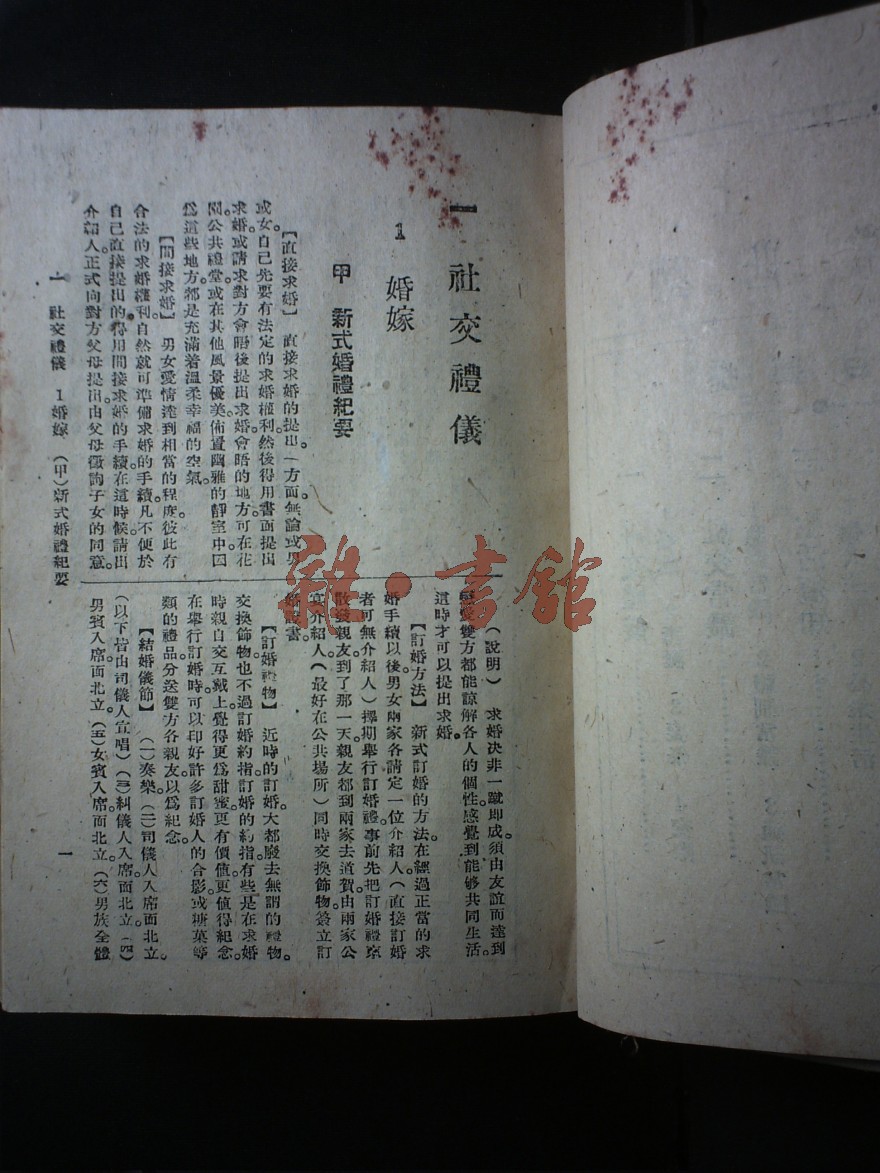 一 社交禮儀
1 婚嫁
甲 新式婚禮紀要
【直接求婚】 直接求婚的提出。一方面。無論或男
或女。自己先要有法定的求婚權利。然後得用書面提出
求婚。或請求對方會晤後提出求婚。會晤的地方。可在花
園。公共禮堂。或在其他風景優美。佈置幽雅的靜室中。因
爲這些地方。都是充滿着溫柔幸福的空氣。
【間接求婚】 男女愛情達到相當的程度。彼此有
合法的求婚權利。自然就可準備求婚的手續。凡不便於
自己直接提出的。得用間接求婚的手續。在這時候。請出
介紹人。正式向對方父母提出。由父母徵詢子女的同意。
（說明） 求婚決非一蹴卽成。須由友誼而達到
雙方都能諒解各人的個性。感覺到能够共同生活。
這時才可以提出求婚。
【訂婚方法】 新式訂婚的方法。在經過正當的求
婚手續以後。男女兩家各請定一位介紹人（直接訂婚
者可無介紹人）擇期舉行訂婚禮。事前先把訂婚禮柬
散發親友。到了那一天。親友都到兩家去道賀。由兩家公
宴介紹人（最好在公共場所）同時交換飾物。簽立訂
婚證書。
【訂婚禮物】 近時的訂婚。大都廢去無謂的禮物。
交換飾物。也不過訂婚約指。訂婚的約指。有些是在求婚
時親自交互戴上。覺得更爲甜蜜。更有價值。更值得紀念。
在舉行訂婚時。可以印好許多訂婚人的合影。或糖菓等
類的禮品。分送雙方各親友。以爲紀念。
【結婚儀節】 （一）奏樂。（二）司儀人入席。面北立。
（以下皆由司儀人宣唱）（三）糾儀人入席。面北立。（四）
男賓入席。面北立。（五）女賓入席。面北立。（六）男族全體
一 社交禮儀 1 婚嫁 （甲）新式婚禮紀要
一
雜·書館